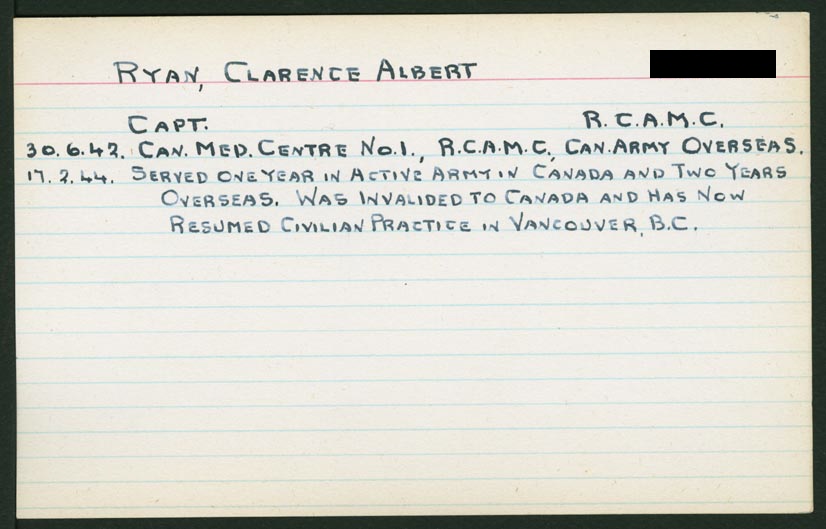 RYAN, CLARENCE ALBERT
CAPT. R.C.A.M.C.
30.6.42. CAN. MED. CENTRE No.1., R.C.A.M.C., CAN. ARMY OVERSEAS.
17.2.44. SERVED ONE YEAR IN ACTIVE ARMY IN CANADA AND TWO YEARS
OVERSEAS. WAS INVALIDED TO CANADA AND HAS NOW
RESUMED CIVILIAN PRACTICE IN VANCOUVER, B.C.